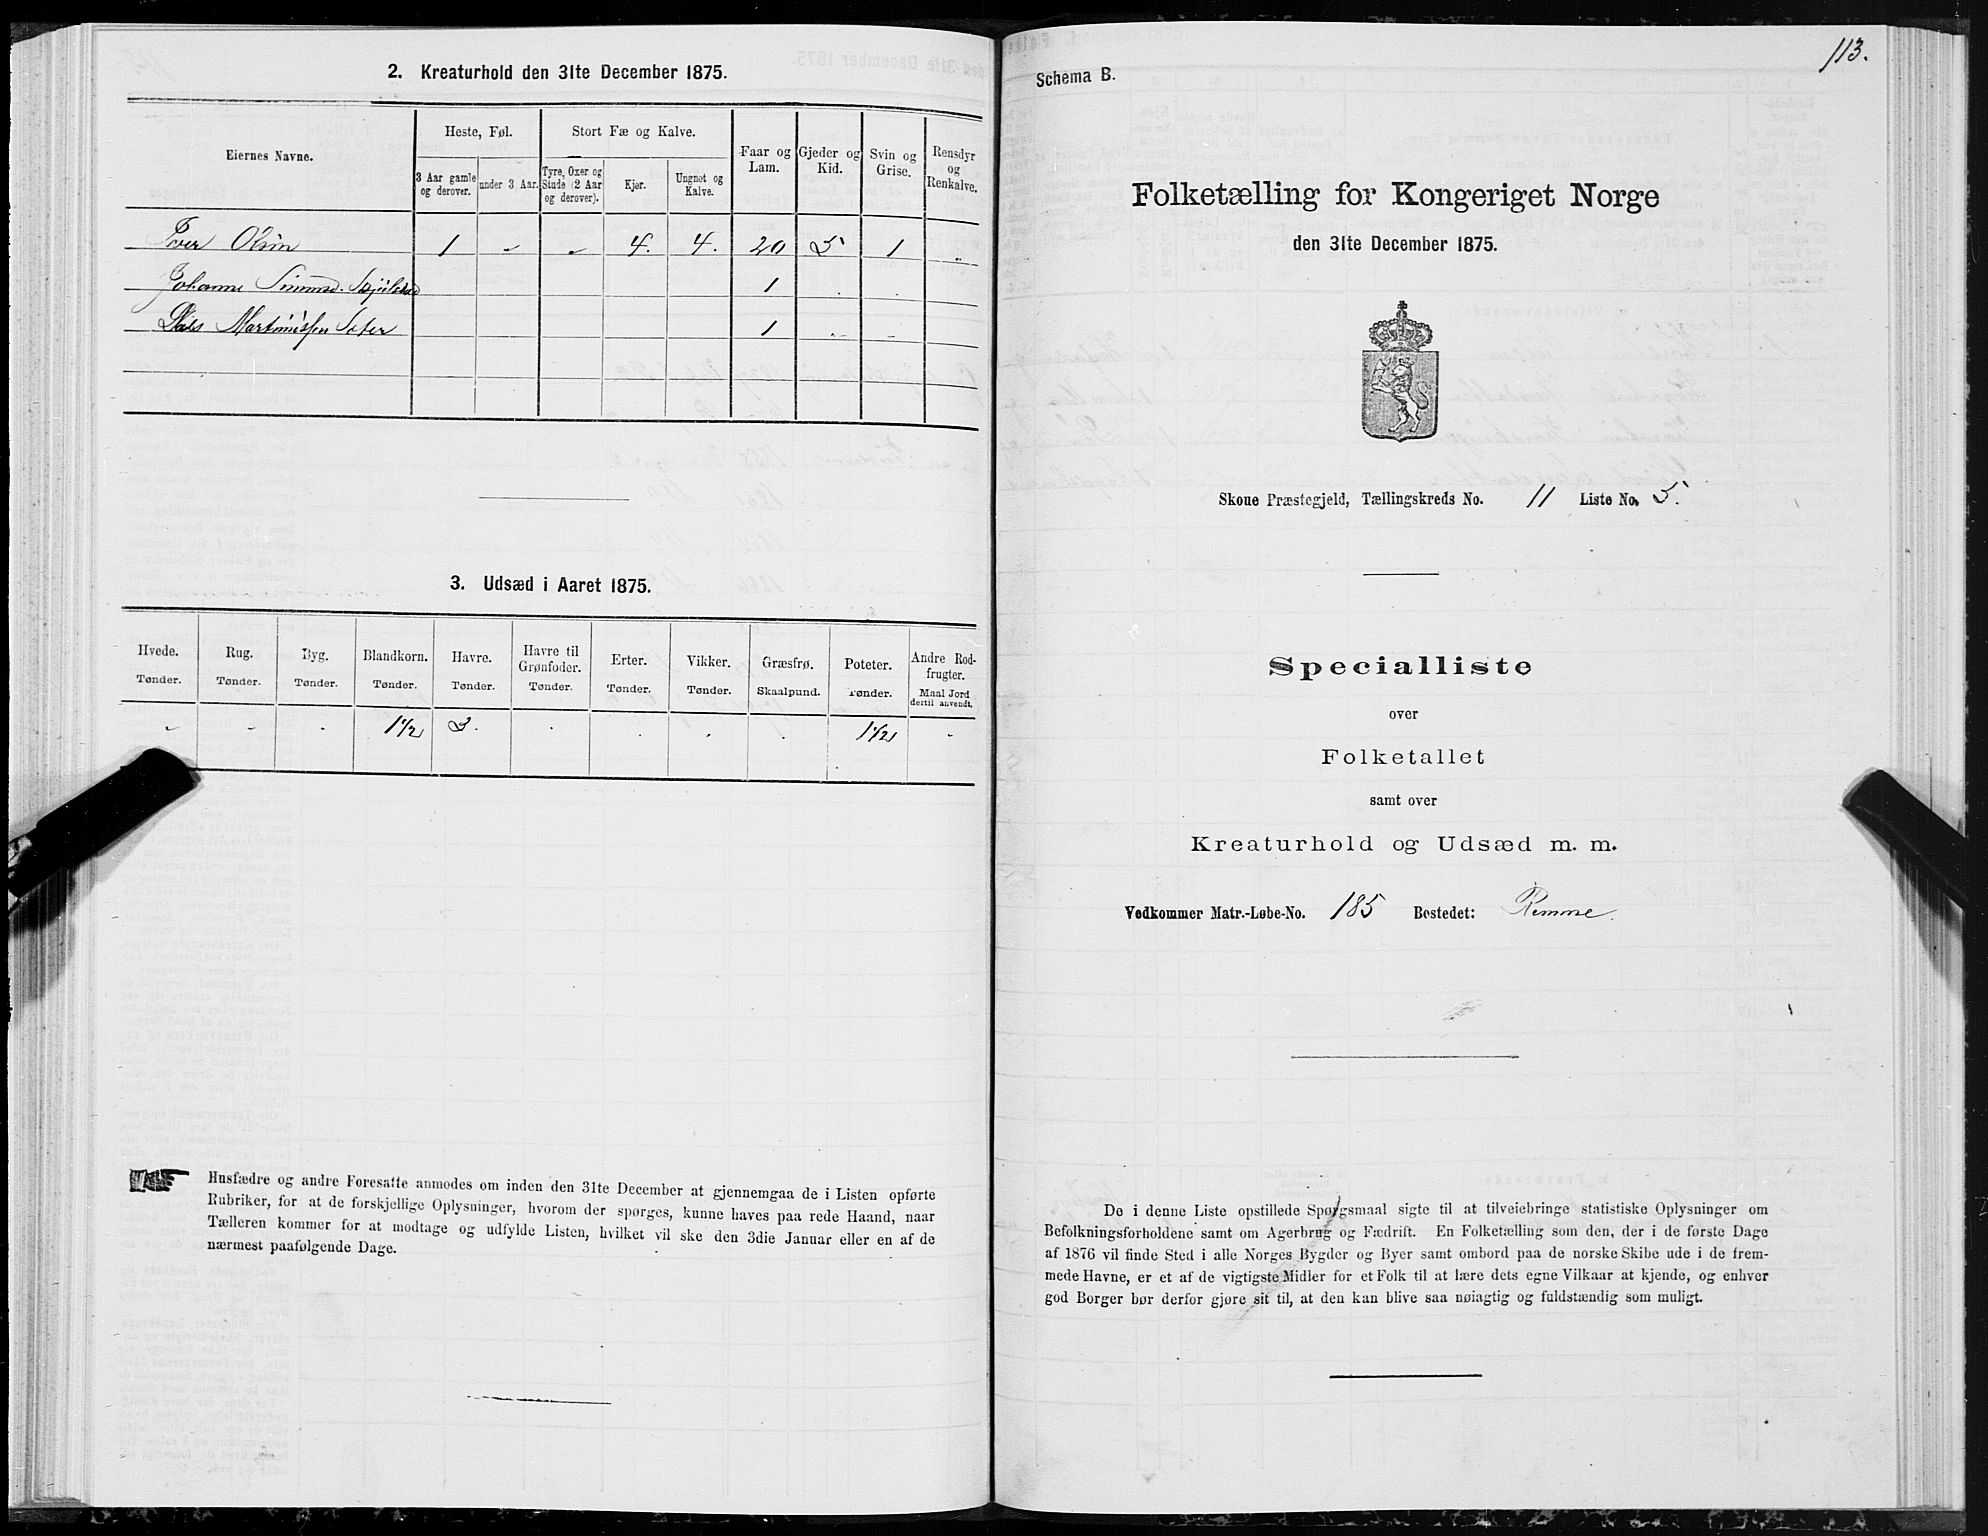 2. Kreaturhold den 31te December 1875.
Eiernes Navne.
Heste, Føl.
Stort Fæ og Kalve.
Faar og Lam.
Gjeder og Kid.
Svin og Grise.
Rensdyr og Renkalve.
3 Aar gamle og derover.
under 3 Aar.
Tyre, Oxer og Stude (2 Aar og derover).
Kjør.
Ungnøt og Kalve.
Iver Olsen 1 " " 4. 4. 20 5 1 "
Johanne Simensd. 1
Martinissen 1
3. Udsæd i Aaret 1875.
Hvede. Rug. Byg. Blandkorn. Havre. Havre til Grønfoder. Erter. Vikker. Græsfrø. Poteter. Andre Rodfrugter.
Tønder. Tønder. Tønder. Tønder. Tønder. Tønder. Tønder. Tønder. Skaalpund. Tønder. Maal Jord dertil anvendt.
" " " 1 1/2 3. " " " " 1 1/2 "
Husfædre og andre Foresatte anmodes om inden den 31te December at gjennemgaa de i Listen opførte
Rubriker, for at de forskjellige Oplysninger, hvorom der spørges, kunne haves paa rede Haand, naar
Tælleren kommer for at modtage og udfylde Listen, hvilket vil ske den 3die Januar eller en af de
nærmest paafølgende Dage.
113.
Schema B.
Folketælling for Kongeriget Norge
den 31te December 1875.
Skoue Præstegjeld, Tællingskreds No. 11 Liste No. 5.
Specialliste
over
Folketallet
samt over
Kreaturhold og Udsæd m. m.
Vedkommer Matr.-Løbe-No. 185 Bostedet: Remme.
De i denne Liste opstillede Spørgsmaal sigte til at tilveiebringe statistiske Oplysninger om
Befolkningsforholdene samt om Agerbrug og Fædrift. En Folketælling som den, der i de første Dage
af 1876 vil finde Sted i alle Norges Bygder og Byer samt ombord paa de norske Skibe ude i de frem-
mede Havne, er et af de vigtigste Midler for et Folk til at lære dets egne Vilkaar at kjende, og enhver
god Borger bør derfor gjøre sit til, at den kan blive saa nøiagtig og fuldstændig som muligt.